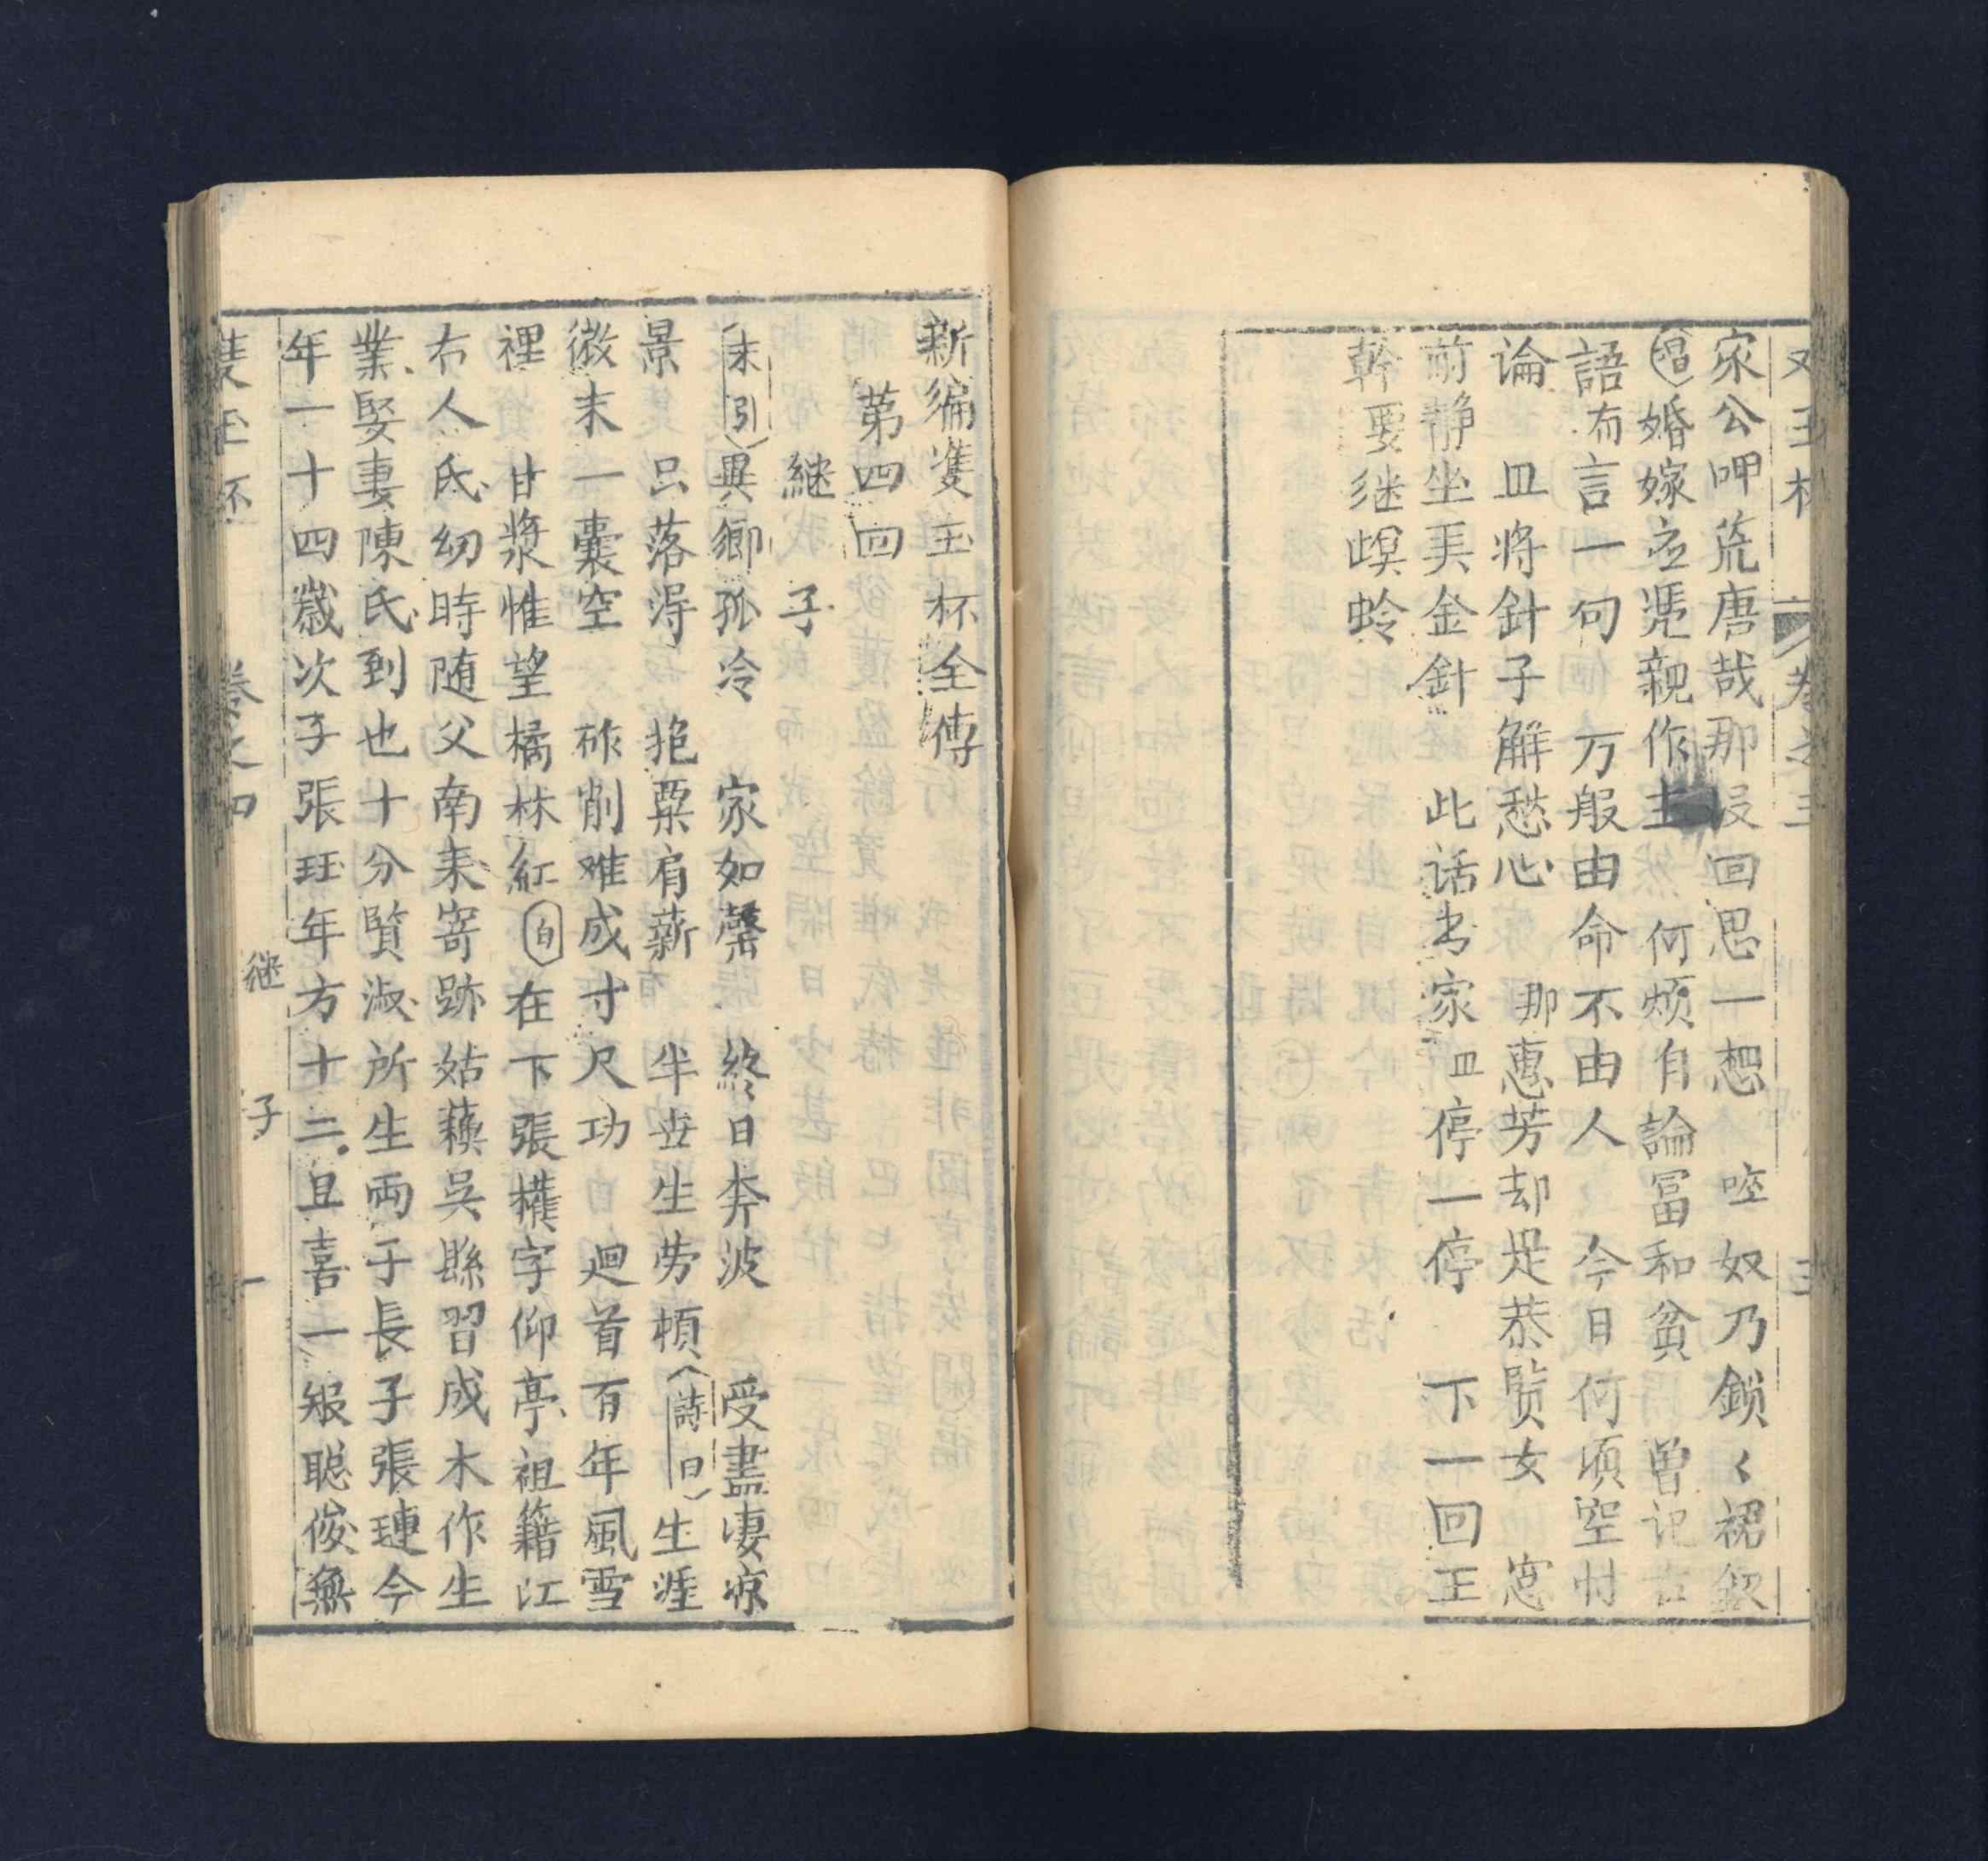 双玉杯 卷之三 三
家公呷荒唐哉那段回思一想 啞奴乃鎖〻裙釵
唱婚嫁立凴親作主 何煩自論冨和貧 曽记古
語有言一句 万般由命不由人 今日何須空忖
论 皿将針子解愁心 那惠芳却是恭賢女 窓
前静坐美金針 此话书家皿停一停 下一回王
幹要继螟蛉
新編隻玉杯全傳
第四回
継子
末引異鄉孤冷 家如罄 終日奔波 受盡凄凉
景 只落淂 抱粟肩薪 半世生劳頓 詩曰生涯
微末一囊空 砍削难成寸尺功 廻首百年風雪
裡 甘漿惟望橘林紅 白在下張權字仰亭祖籍江
右人氏幼時随父南来寄跡姑蘓吳縣習成木作生
業娶妻陳氏到也十分賢淑所生両子長子張璉今
年一十四歲次子張珏年方十二且喜一般聪俊無
隻玉杯 卷之四 継子 一